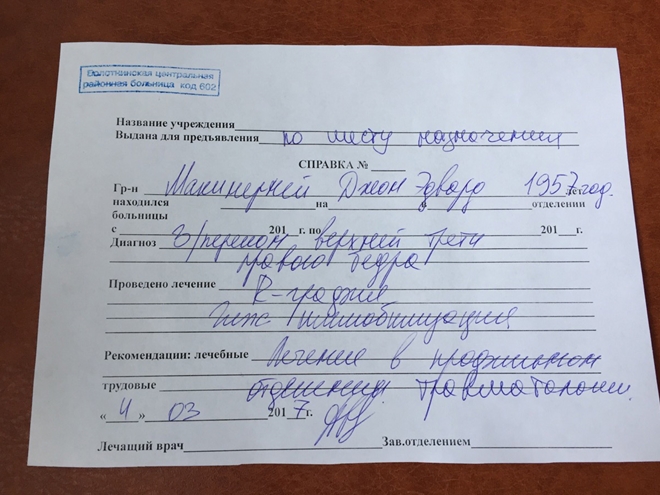 Болотнинская центральная
районная больница код 602
Название учреждения
Выдана для предъявления по месту назначения
СПРАВКА №
Гр-н Макинерней Джон Эдвард 1957 год. лет
находился на в отделении
больницы
с 201 г. по 201 г.
Диагноз З/перелом верхней трети
правого бедра
Проведено лечение R-графия
Гипс иммобилизация
Рекомендации: лечебные Лечение в профильном
трудовые отделении травматологии.
«4» 03 2017 г.
Лечащий врач Зав.отделением